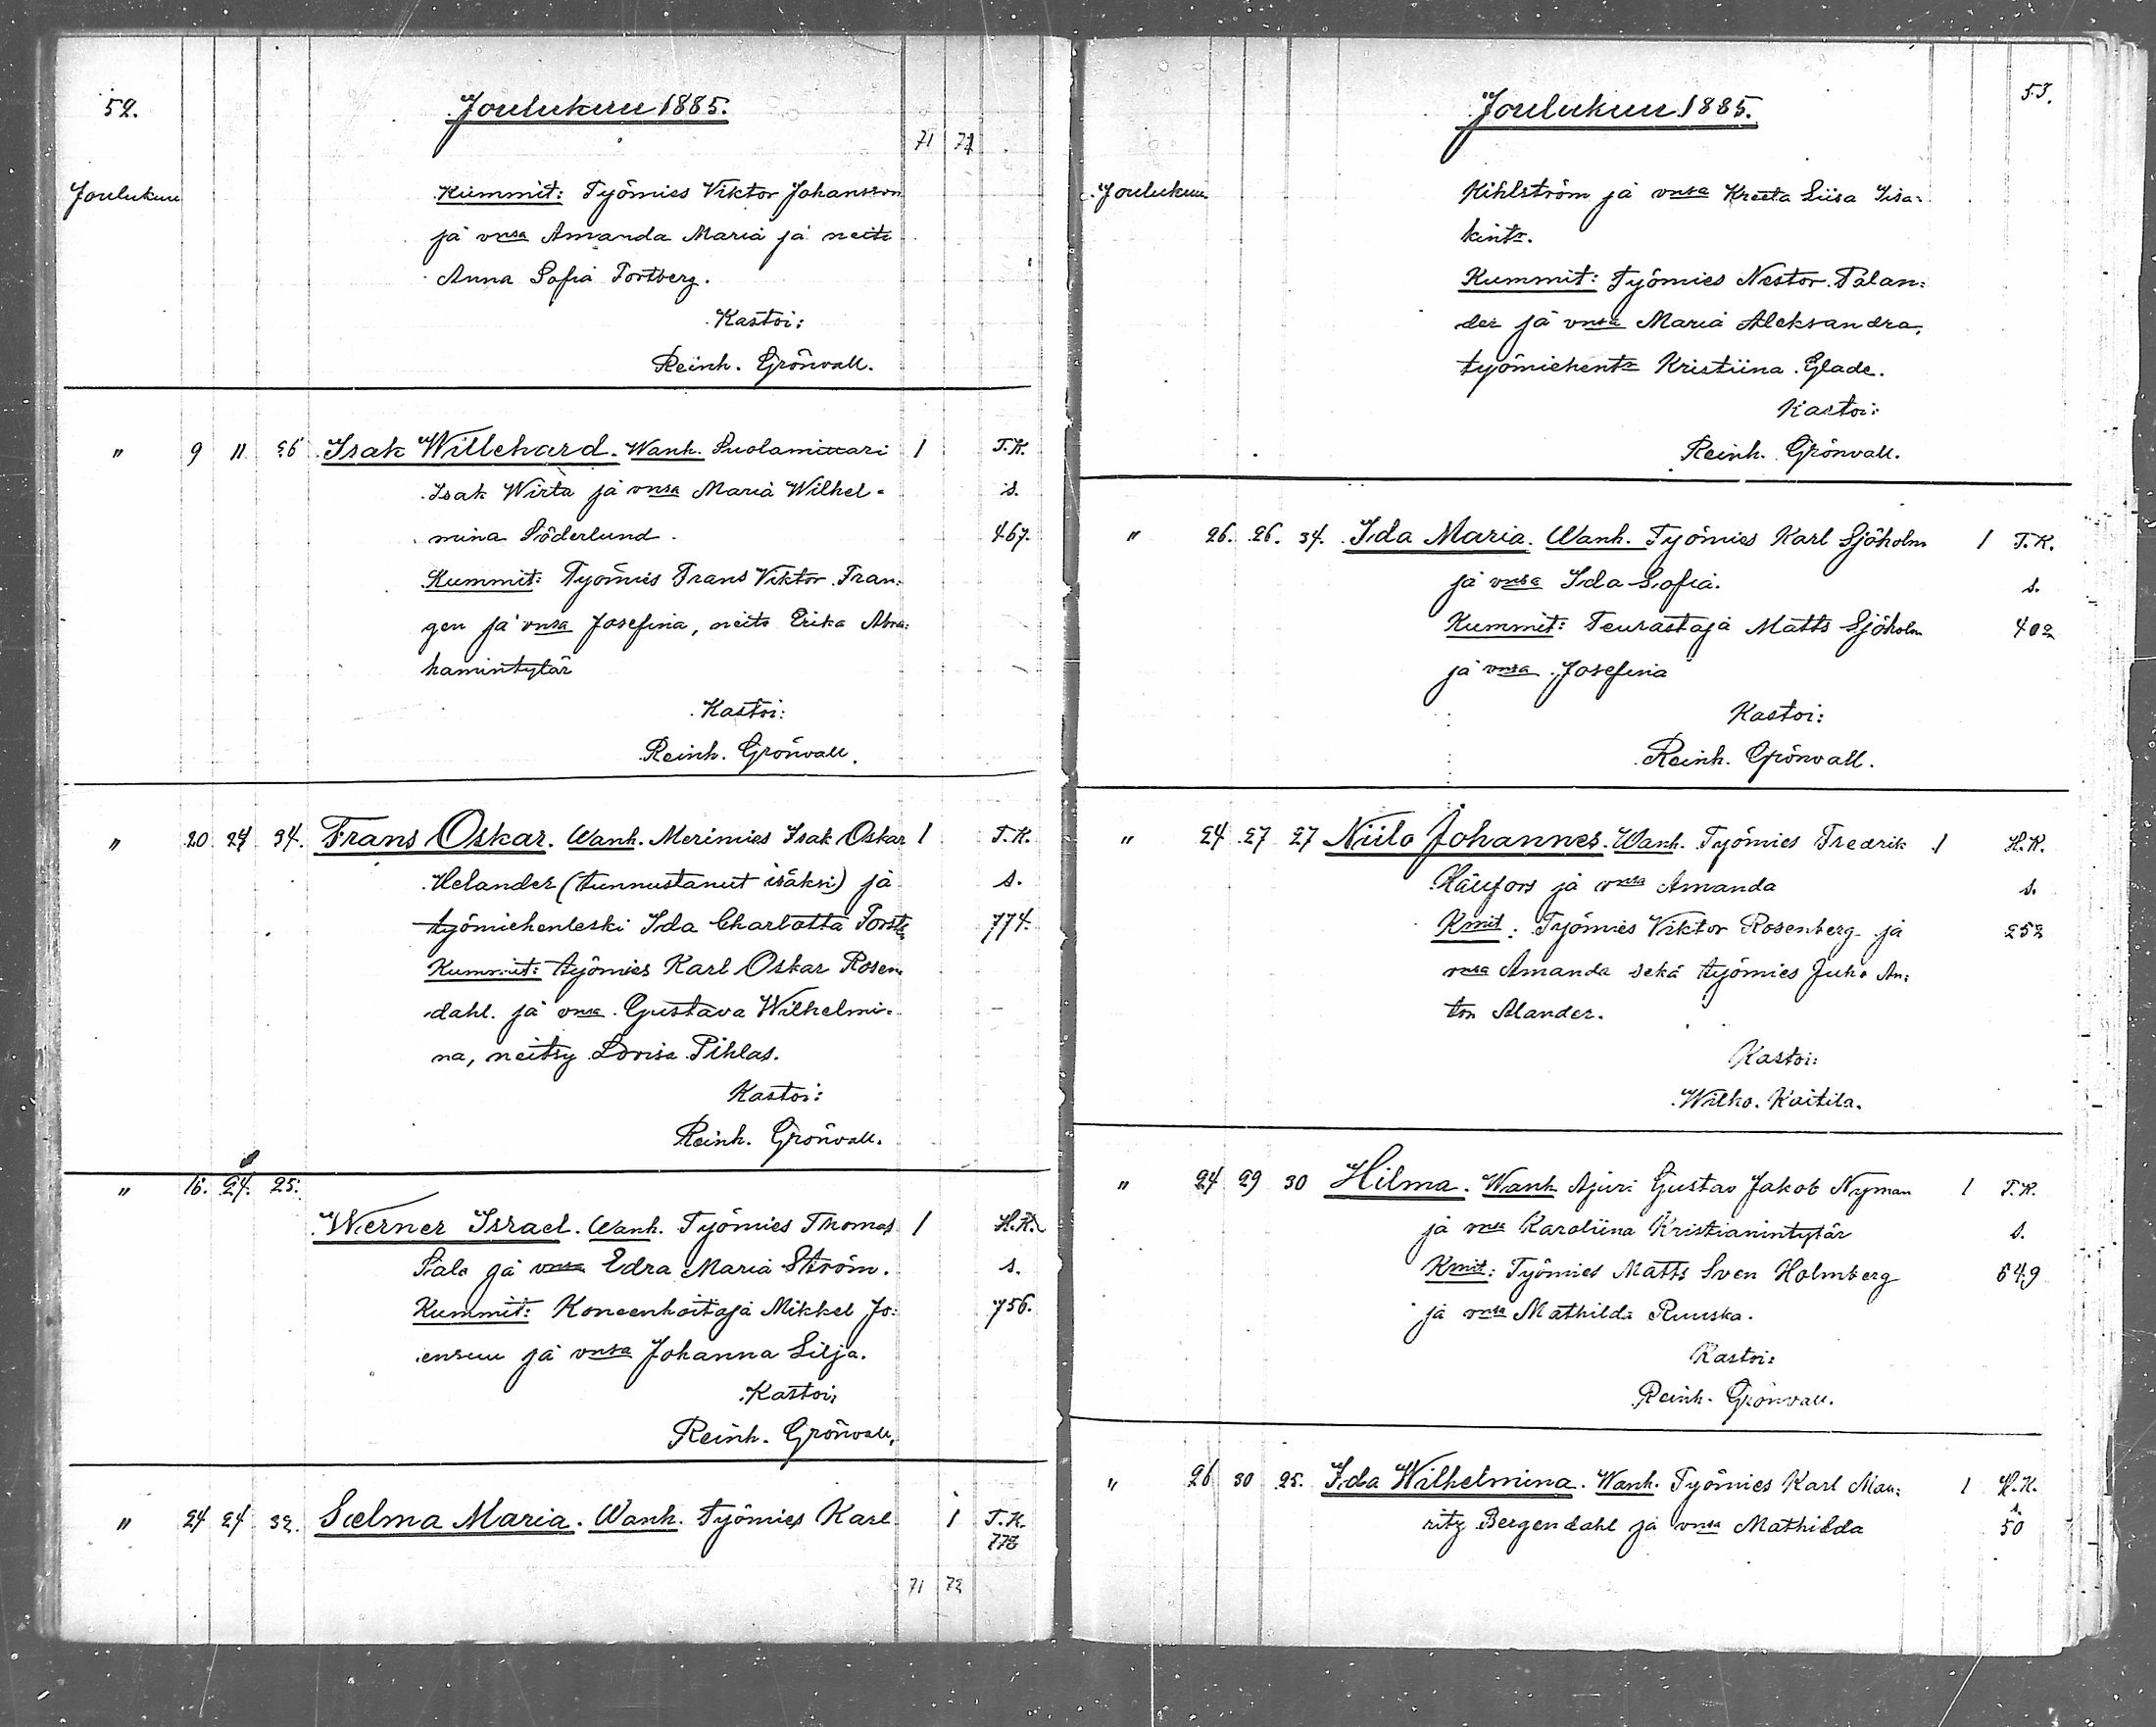 52.
Joulukuu 1885.
71 72
Joulukuu
Kummit: Työmies Viktor Johansson
ja vmsa Amanda Maria ja neito
Anna Sofia Fortberg.
Kastoi:
Reinh. Grönvall.
" 9 11 Isak Willehard. Wanh. Suolamittari 1 T.K.
Isak Wirta ja vmsa Maria Wilhel- s.
mina Söderlund. 467.
Kummit: Työmies Frans Viktor Fran:
gen ja vmsa Josefina, neito Erika Abra:
hamintytär
Kastoi:
Reinh. Grönvall.
" 20 24 34. Frans Oskar. Wanh. Merimies Isak Oskar 1 T.K.
Helander (tunnustanut isäksi) ja s.
työmiehenleski Ida Charlotta 774.
Kummit: työmies Karl Oskar Rosen-
dahl. ja vmsa Gustava Wilhelmi-
na, neitsy Lovisa Pihlas.
Kastoi:
Reinh. Grönvall.
" 16. 24. 25.
Werner Israel. Wanh. Työmies Thomas 1 H.K.
Salo ja vmsa Edra Maria Ström. s.
Kummit: Koneenhoitaja Mikkel Jo: 756.
ensuu ja vmsa Johanna Silja.
Kastoi,
Reinh. Grönvall,
" 24 24 32. Selma Maria. Wanh. Työmies Karl 1 T.K.
778
71 72
53.
Joulukuu 1885.
Joulukuu
Kihlström ja vmsa Kreeta Liisa Iisa:
kintr.
Kummit: Työmies Nestor Palan:
der ja vmsa Maria Aleksandra,
työmiehentr Kristiina Glade.
Kastoi:
Reinh. Grönvall.
" 26. 26. 34. Ida Maria. Wanh. Työmies Karl Sjöholm 1 T.K.
ja vmsa Ida Sofia. s.
Kummit: Teurastaja Matts Sjöholm 402
ja vmsa Josefina
Kastoi:
Reinh. Grönvall.
" 24 27 27 Niilo Johannes. Wanh. Työmies Fredrik 1 H.K.
ja vmsa Amanda s.
Kmit: Työmies Viktor Rosenberg ja 252
vmsa Amanda sekä työmies Juho An:
ton Alander.
Kastoi:
Wilho. Kaitila.
" 24 29 30 Hilma. Wanh Ajuri Gustav Jakob Nyman 1 T.K.
ja vmsa Karoliina Kristianintytär s.
Kmit: Työmies Matts Sven Holmberg 649
ja vmsa Mathilda Ruuska.
Kastoi:
Reinh. Grönvall.
" 26 30 25. Ida Wilhelmina. Wanh. Työmies Karl Mau: 1 H.K.
s.
ritz Bergendahl ja vmsa Mathilda 50